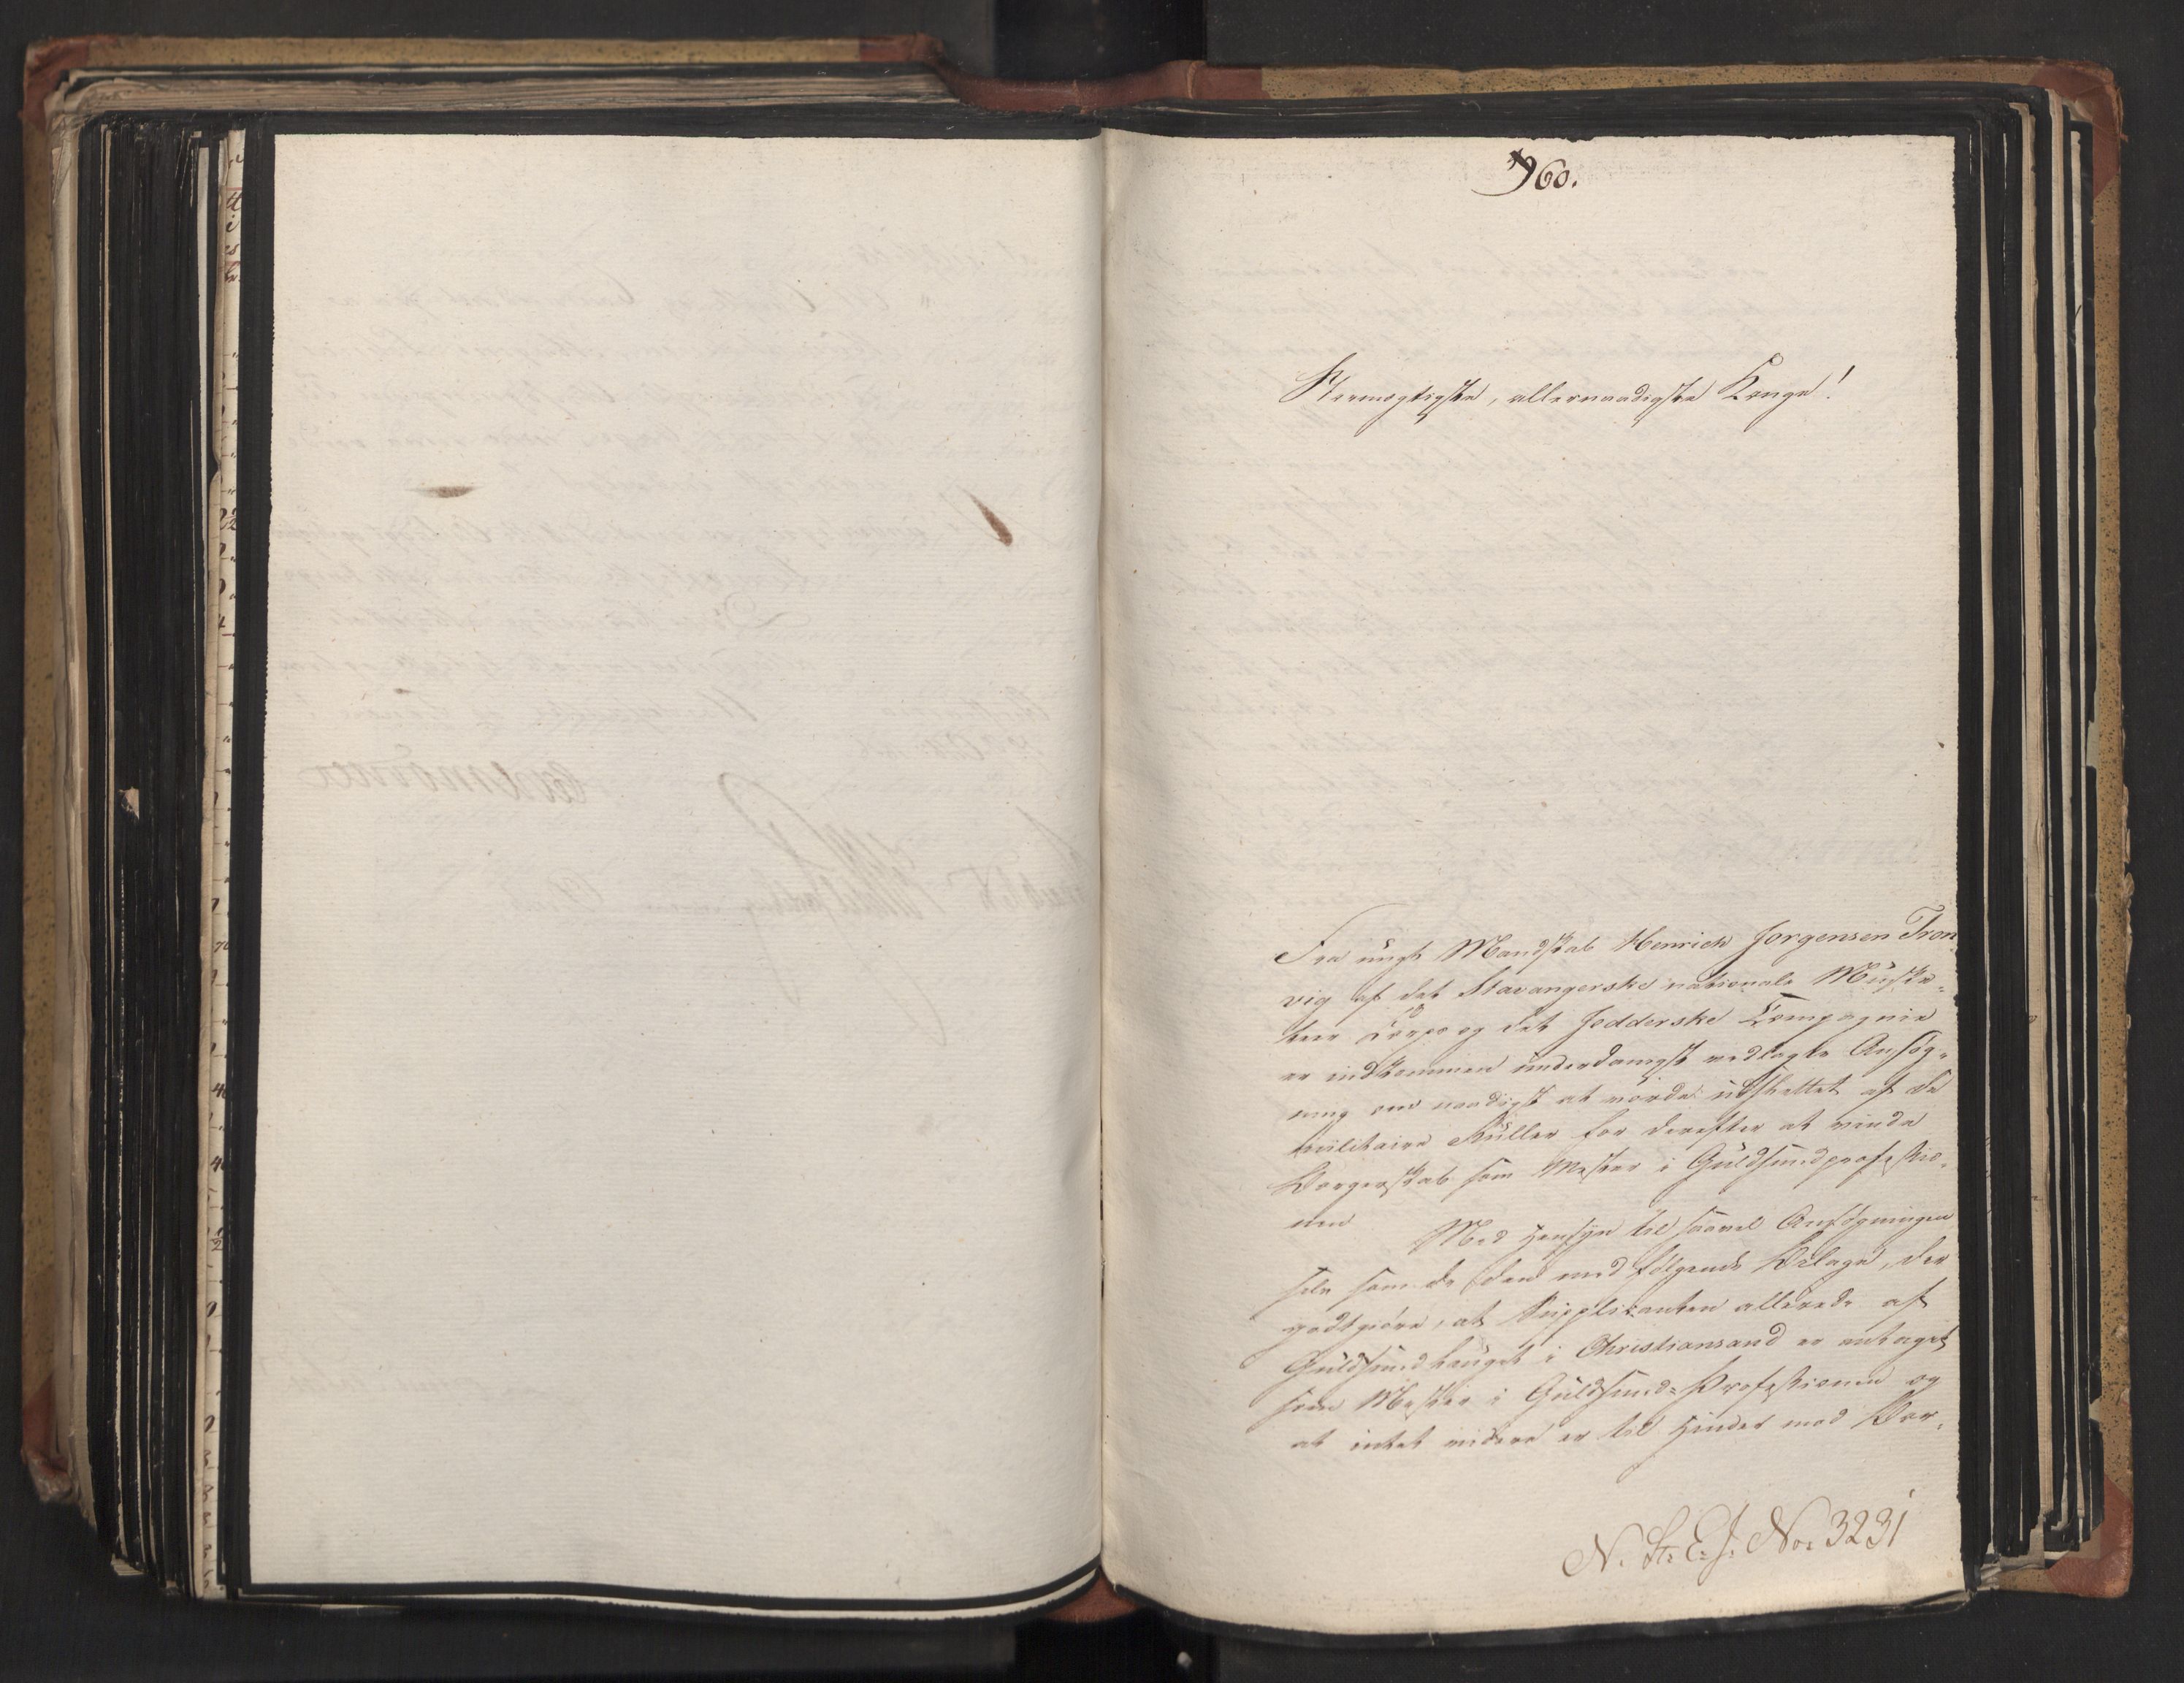 960.
Stormægtigste, allernaadigste Konge!
Fra ungt Mandskab Henrich Jorgensen Tron-
vig af det Stavangerske nationale Muske-
teer Corps og det Jedderske Compagnie
er indkommen underdanigst vedlagte Ansøg-
ning om naadigst at vorde udslettet af de
militaire Ruller for derefter at vinde
Borgerskab som Mester i Guldsmedprofessio-
nen
Med Hensyn til saavel Ansøgningen
selv som de den medfølgende Bilage, der
godtgiøre, at Supplikanten allerede af
Guldsmedlauget i Christiansand er antaget
som Mester i Guldsmed-Professionen og
at intet videre er til Hinder mod Bor-
N. St. E. J. No. 3231